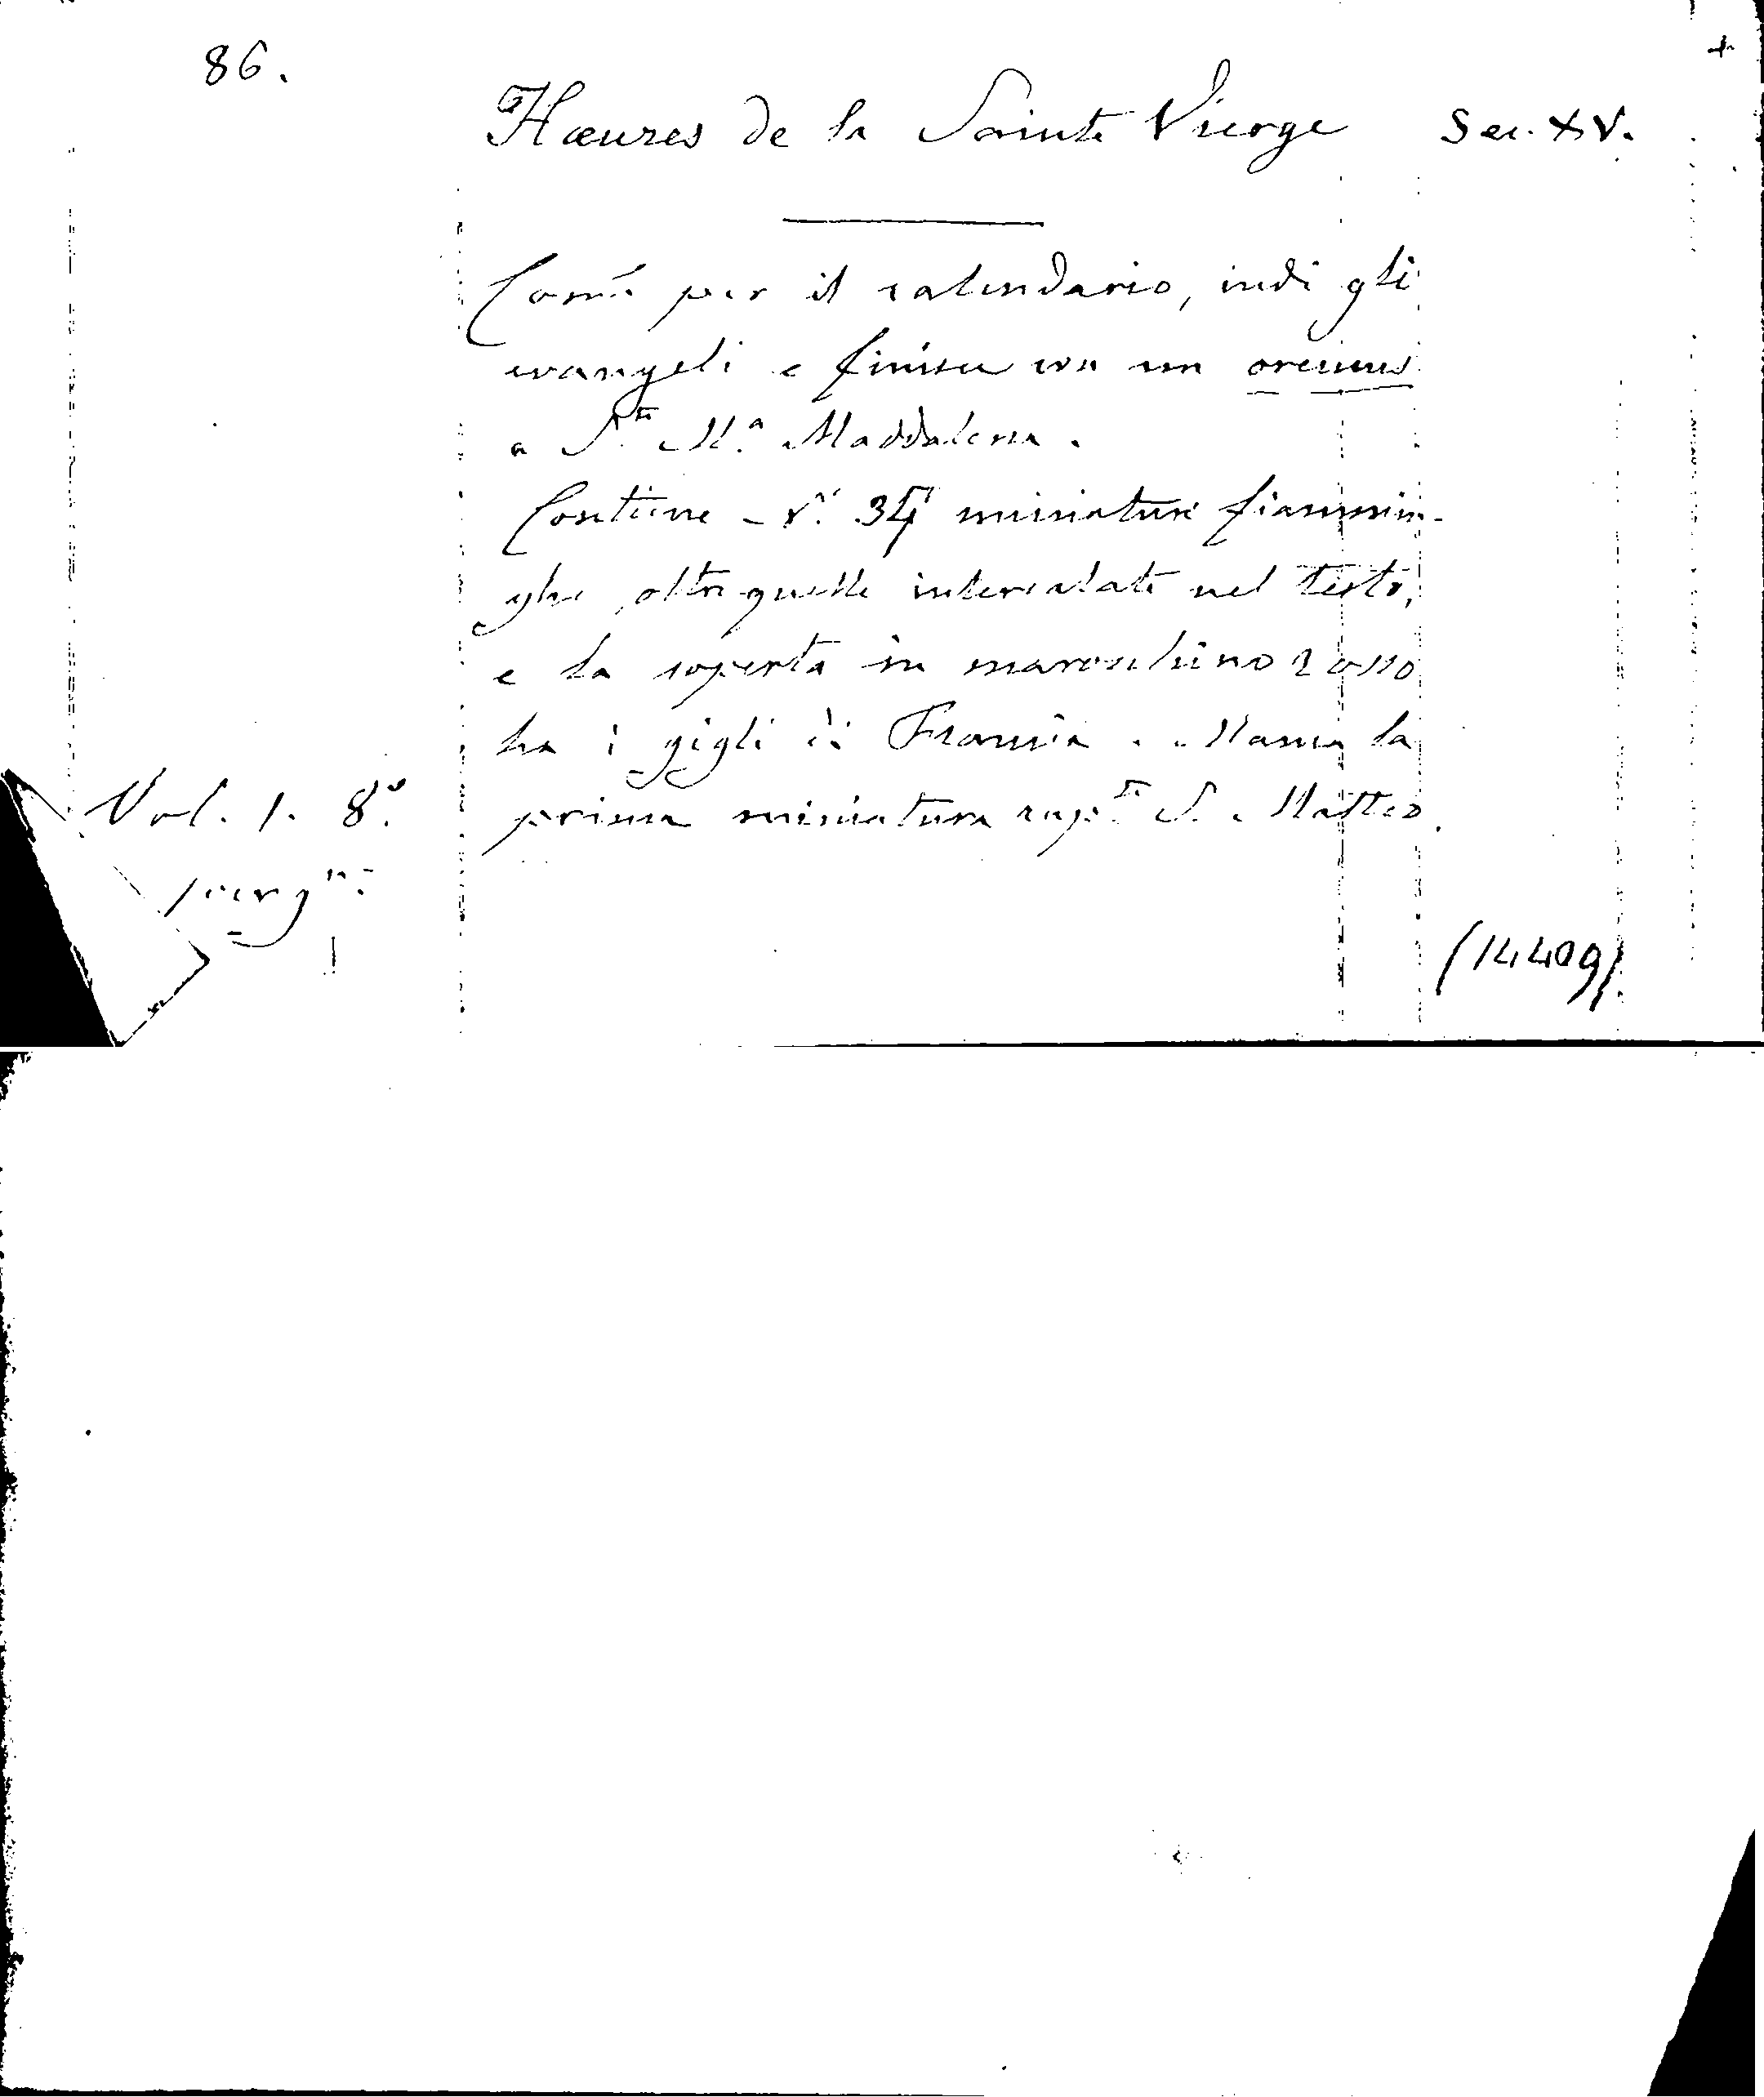 86.
+
Hœures de la Sainte Vierge Sec. XV.
Com.a per il calendario, indi gli
evangeli e finisce con un oremus
a S.ta M.a Maddalena.
Contiene N.o miniature fiammin-
ghe, oltre quelle intercalate nel testo,
e la coperta in marocchino rosso
ha i gigli di Francia. Manca la
prima miniatura rap.te S. Matteo.
Vol. 1. 8.o
perg.o
(14409)